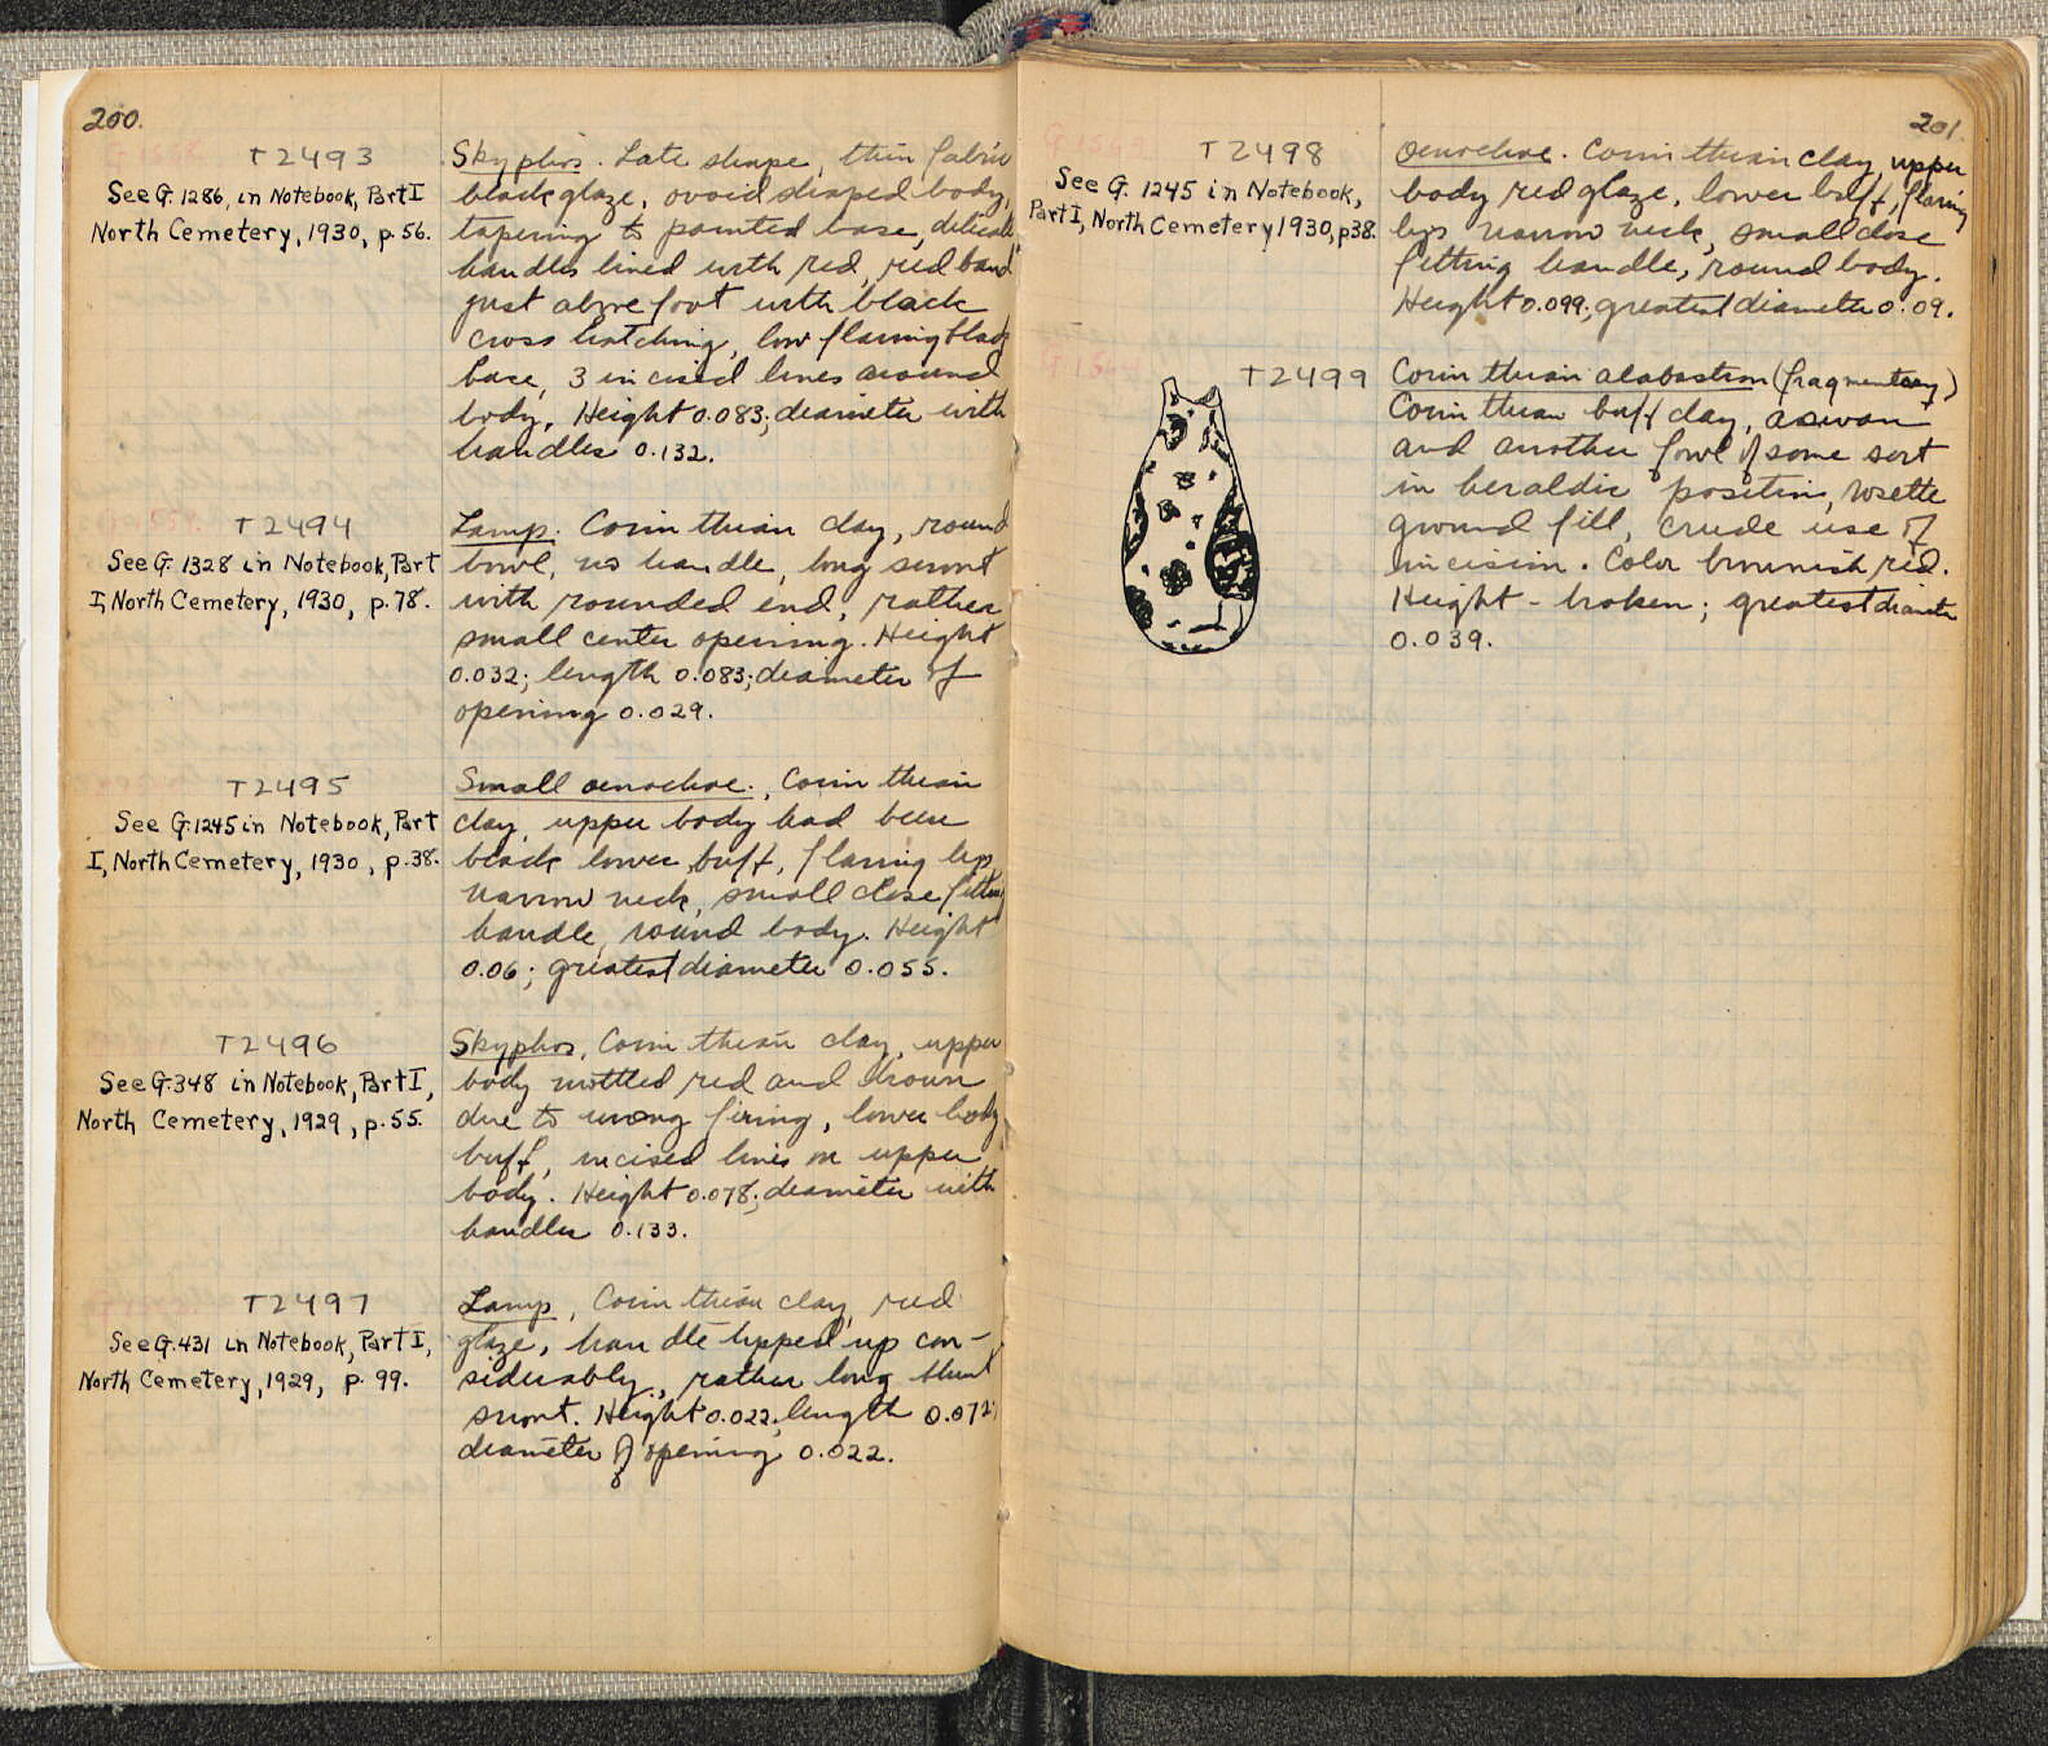 200.
T2493
See G. 1286, in Notebook, Part I
North Cemetery, 1930, p. 56.
Skyphos. Late shape, thin fabric
black glaze, ovoid shaped body,
tapering to pointed base, delicate
handles lined with red, red band
just above foot with black
cross hatching, low flaring black
base, 3 incised lines around
body. Height 0.083; diameter with
handles 0.132.
T2494
See G. 1328 in Notebook, Part
I, North Cemetery, 1930, p. 78.
Lamp. Corinthian clay, round
bowl, no handle, long snout
with rounded end, rather
small center opening. Height
0.032; length 0.083; diameter of
opening 0.029.
T2495
See G. 1245 in Notebook, Part
I, North Cemetery, 1930, p. 38.
Small oenochoe., Corinthian
clay, upper body had been
black lower buff, flaring lips
narrow neck, small close fitting
handle, round body. Height
0.06; greatest diameter 0.055.
T2496
See G. 348 in Notebook, Part I,
North Cemetery, 1929, p. 55.
Skyphos, Corinthian clay, upper
body mottled red and brown
due to wrong firing, lower body
buff, incised lines on upper
body. Height 0.078; diameter with
handles 0.133.
T2497
See G. 431 in Notebook, Part I,
North Cemetery, 1929, p. 99.
Lamp, Corinthian clay, red
glaze, handle tipped up con-
siderably, rather long blunt
snout. Height 0.022; length 0.072;
diameter of opening 0.022.
201.
T2498
See G. 1245 in Notebook,
Part I, North Cemetery 1930, p 38.
Oenochoe. Corinthian clay, upper
body red glaze, lower buff, flaring
lips narrow neck, small close
fitting handle, round body.
Height 0.099; greatest diameter 0.09.
T2499
Corinthian alabastron (fragmentary)
Corinthian buff clay, a swan
and another fowl of some sort
in heraldic position, rosette
ground fill, crude use of
incision. Color brownish red.
Height - broken; greatest diameter
0.039.